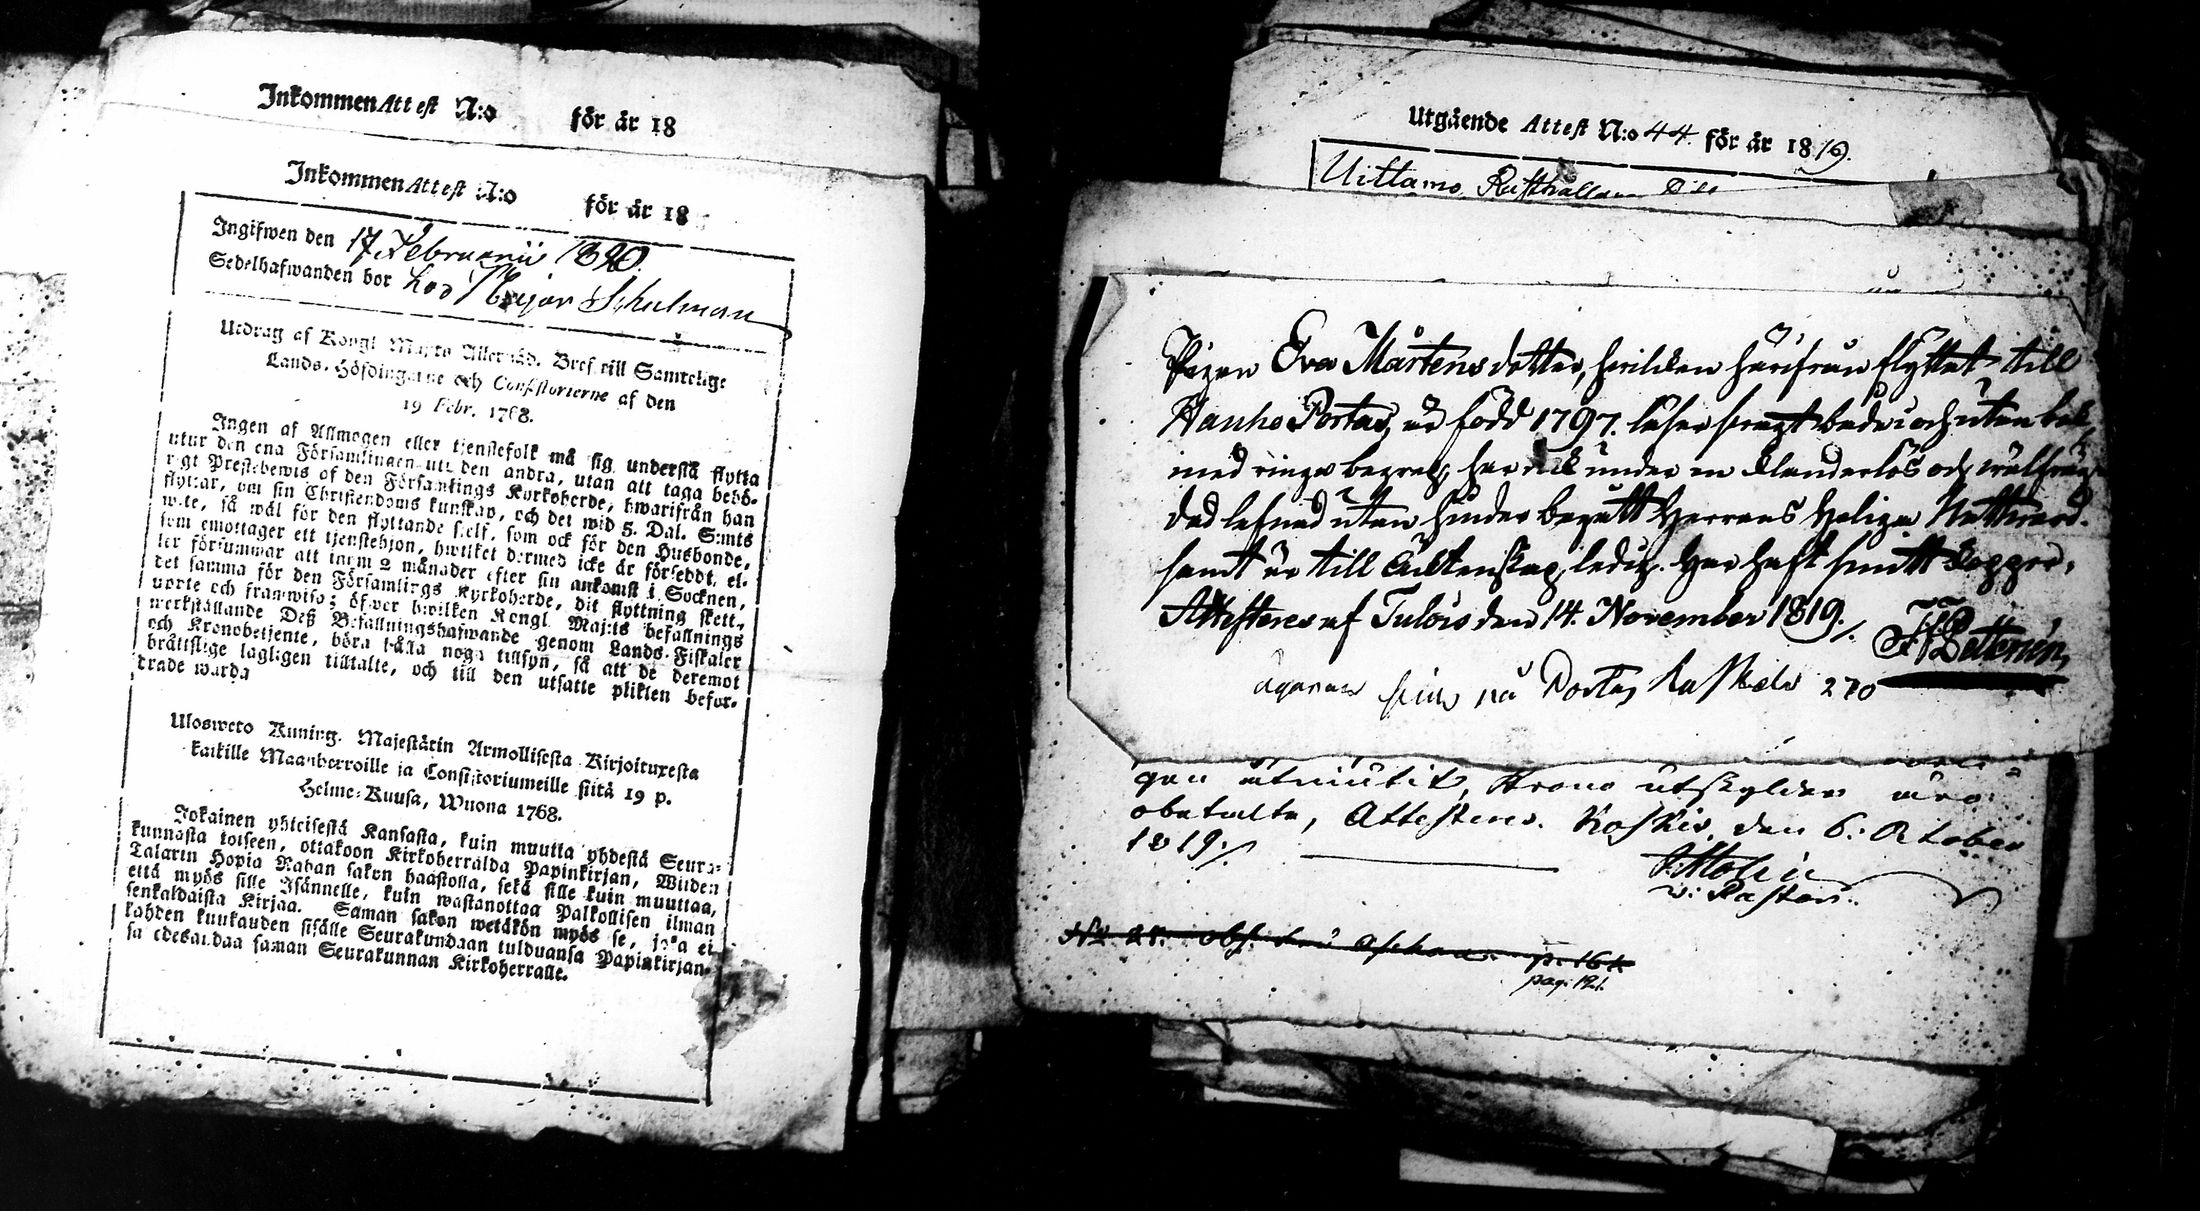 Inkommen Attest N:o för år 18
Inkommen Attest N:o för år 18
Ingifwen den 17 Februarii 1820.
Sedelhafwanden bor hos Major Schulman
Utdrag af Kongl Maj:ts Allernåd. Bref till Samtelige
Lands-Höfdingarne och Consistorierne af den
19 Febr. 1768.
Ingen af Allmogen eller tjenstefolk må sig understå flytta
utur den ena Församlingen uti den andra, utan att taga behö-
rigt Prestebewis af den Församlings Kyrkoherde, hwarifrån han
flyttar, om sin Christendoms kunskap, och det wid 5. Dal. S:mts
wite, så wäl för den flyttande sjelf, som ock för den Husbonde,
som emottager ett tjenstehjon, hwilket dermed icke är försedt, el-
ler försummar att inom 2 månader efter sin ankomst i Socknen,
det samma för den Församlings Kyrkoherde, dit flyttning skett,
upte och framwisa; öfwer hwilken Kongl. Maj:ts befallnings
werkställande Deß Befallningshafwande genom Lands-Fiskaler
och Kronobetjente, böra hålla noga tillsyn, så att de deremot
bråttslige lagligen tilltalte, och till den utsatte plikten befor-
drade warda
Ulosweto Kuning. Majestätin Armollisesta Kirjoituxesta
kaikille Maanherroille ja Consistoriumeille siitä 19 p.
Helme-Kuusa, Wuona 1768.
Jokainen yhteisestä Kansasta, kuin muutta yhdestä Seura-
kunnasta toiseen, ottakoon Kirkoherralda Papinkirjan, Wiiden
Talarin Hopia Rahan sakon haastolla, sekä sille kuin muuttaa,
että myös sille Isännelle, kuin wastanottaa Palkollisen ilman
senkaldaista Kirjaa. Saman sakon wetäkön myös se, joka ei
kahden kuukauden sisälle Seurakundaan tulduansa Papinkirjan-
sa edesandaa saman Seurakunnan Kirkoherralle.
Utgående Attest N:o 44. för år 1819.
Uittamo, Rusthållare
Pigan Eva Mårtensdotter, hwilken härifrån flyttat till
Hauho Portas, är född 1797. läser swagt både i och utan bok,
med ringa begrep, har under en klanderlös och wälfräg-
dad lefnad utan hinder begått Herrans Heliga Nattward.
samt är till Äcktenskap ledig. Har haft smitt Koppor,
Attesteras af Tulois den 14. November 1819./.
på Portas 270
Krono utskylder äro
obetalte, Attesteras. Koskis, den 6. October
1819./.
v: Pastor.
pag. 121.